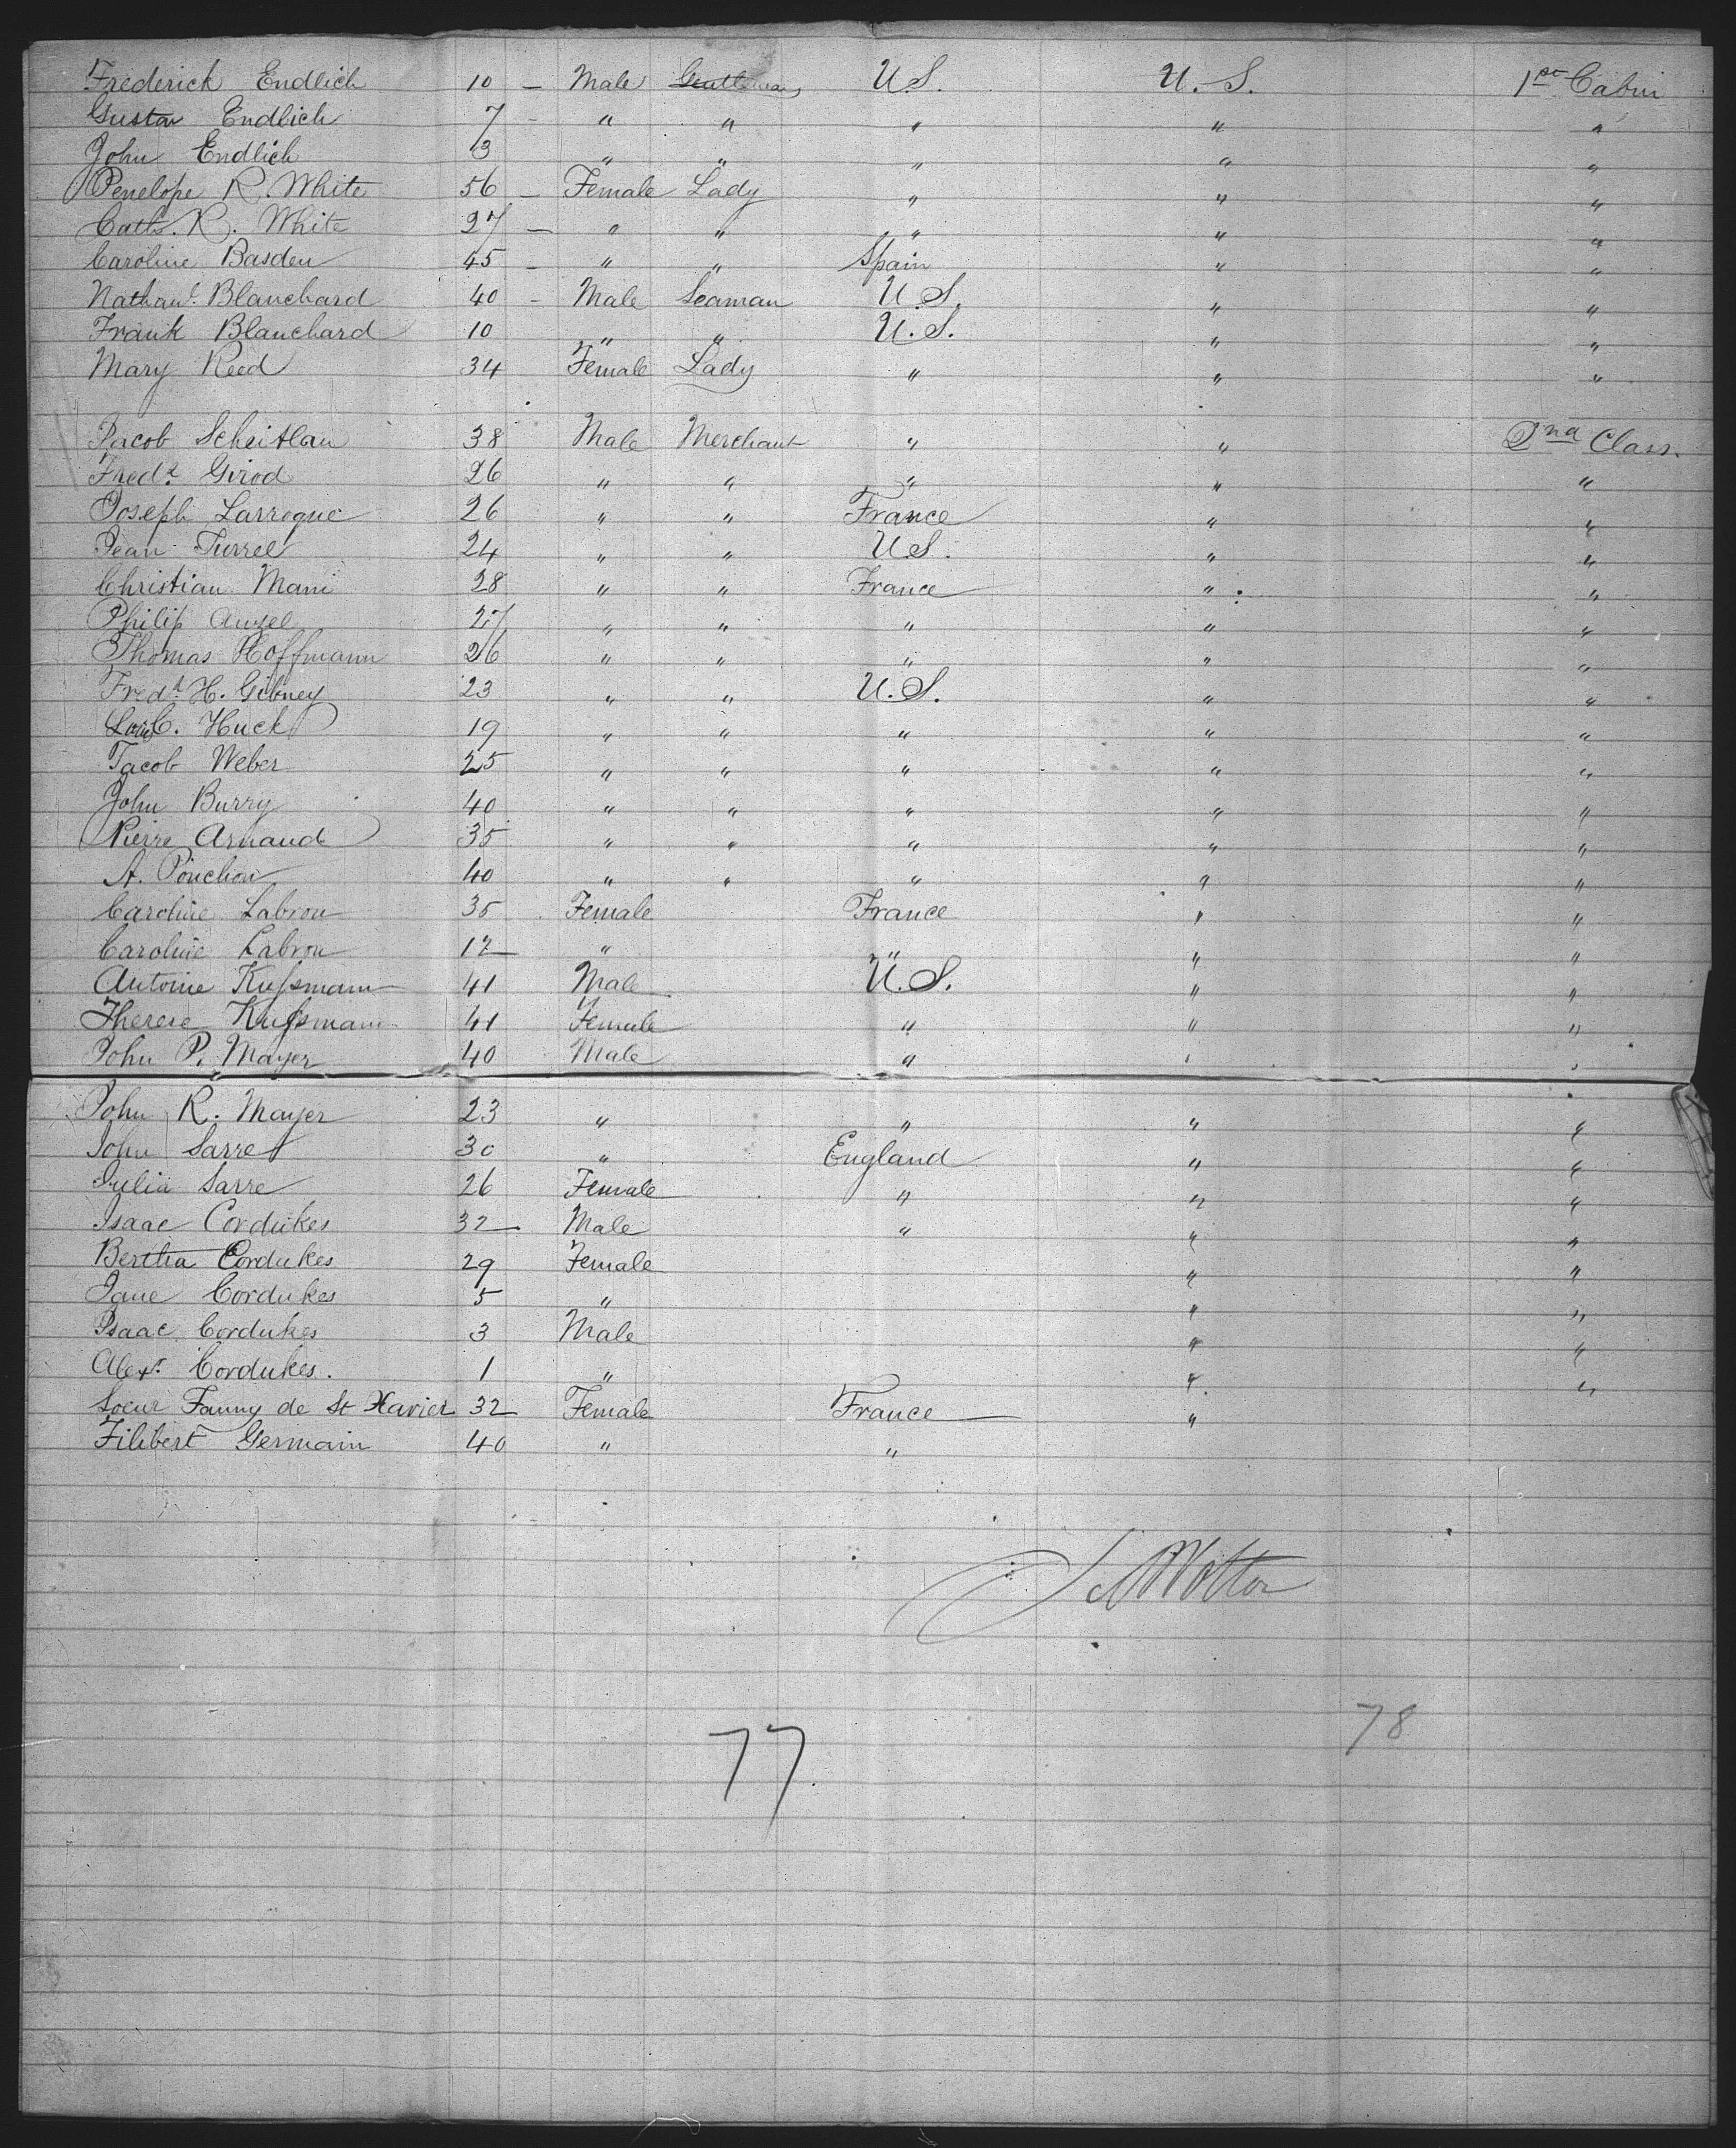 Frederick Endlich 10 – Male Gentleman U.S. U.S. 1st Cabin
Gustav Endlich 7 – " " " " "
John Endlich 3 " " " " "
Penelope R. White 56 – Female Lady " " "
Cath. R. White 27 – " " " " "
Caroline Basden 45 – " " Spain " "
Nathanl. Blanchard 40 – Male Seaman U.S. " "
Frank Blanchard 10 " " U.S. " "
Mary Reed 34 Female Lady " " "
Jacob Scheitlan 38 Male Merchant " " 2nd Class.
Fredk. Girod 26 " " " " "
Joseph Larroque 26 " " France " "
Jean Turrel 24 " " U.S. " "
Christian Mani 28 " " France " "
Philip 27 " " " " "
Thomas Hoffmann 26 " " " " "
Fredk. H. Gibney 23 " " U.S. " "
C. Huck 19 " " " " "
Jacob Weber 25 " " " " "
John Burry 40 " " " " "
Pierre Arnaud 35 " " " " "
A. Ponchon 40 " " " " "
Caroline Labrou 35 Female France " "
Caroline Labrou 12 " " " "
Antoine Kussmann 41 Male U.S. " "
Therese Kussmann 41 Female " " "
John P. Mayer 40 Male " " "
John R. Mayer 23 " " " "
John Sarre 30 " England " "
Julia Sarre 26 Female " " "
Isaac Cordukes 32 Male " " "
Bertha Cordukes 29 Female " "
Jane Cordukes 5 " " "
Isaac Cordukes 3 Male " "
Alexr. Cordukes. 1 " " "
Soeur Fanny de St Xavier 32 Female France "
Filibert Germain 40 " "
Wotton
78
77.